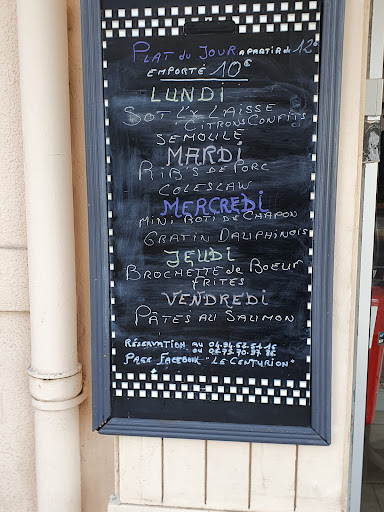 PLAT DU JOUR A PARTIR de 12€
EMPORTÉ 10€
LUNDi
SOT L'Y LAISSE
CITRONS CONFITS
SEMOULE
MARDi
RIB'S DE PORC
COLESLAW
MERCREDi
MINI ROTI DE CHAPON
GRATIN DAUPHINOIS
JEUDi
BROCHETTE de BOEUF
FRITES
VENDREDi
PÂTES AU SAUMON
RÉSERVATION AU
OU
PAGE FACEBOOK "LE CENTURION"